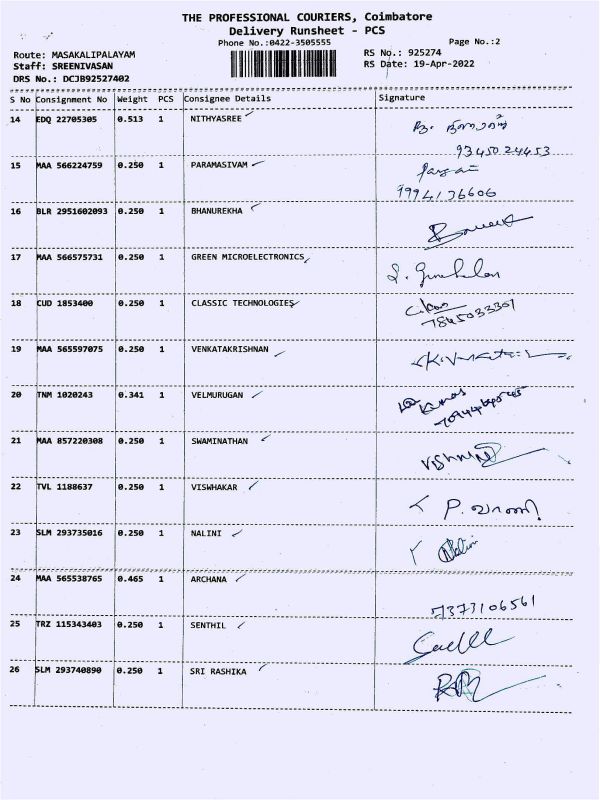 THE PROFESSIONAL COURIERS, Coimbatore
Delivery Runsheet - PCS
Phone No.:0422-3505555
Page No.:2
Route: MASAKALIPALAYAM
RS No.: 925274
Staff: SREENIVASAN
RS Date: 19-Apr-2022
DRS No.: DCJB92527402
S No Consignment No Weight PCS Consignee Details Signature
14 EDQ 22705305 0.513 1 NITHYASREE
9345024453
15 MAA 566224759 0.250 1 PARAMASIVAM
9994136606
16 BLR 2951602093 0.250 1 BHANUREKHA
17 MAA 566575731 0.250 1 GREEN MICROELECTRONICS
18 CUD 1853400 0.250 1 CLASSIC TECHNOLOGIES
7845033301
19 MAA 565597075 0.250 1 VENKATAKRISHNAN
20 TNM 1020243 0.341 1 VELMURUGAN
21 MAA 857220308 0.250 1 SWAMINATHAN
22 TVL 1188637 0.250 1 VISWHAKAR
23 SLM 293735016 0.250 1 NALINI Nalini
24 MAA 565538765 0.465 1 ARCHANA
7373106561
25 TRZ 115343403 0.250 1 SENTHIL
26 SLM 293740890 0.250 1 SRI RASHIKA